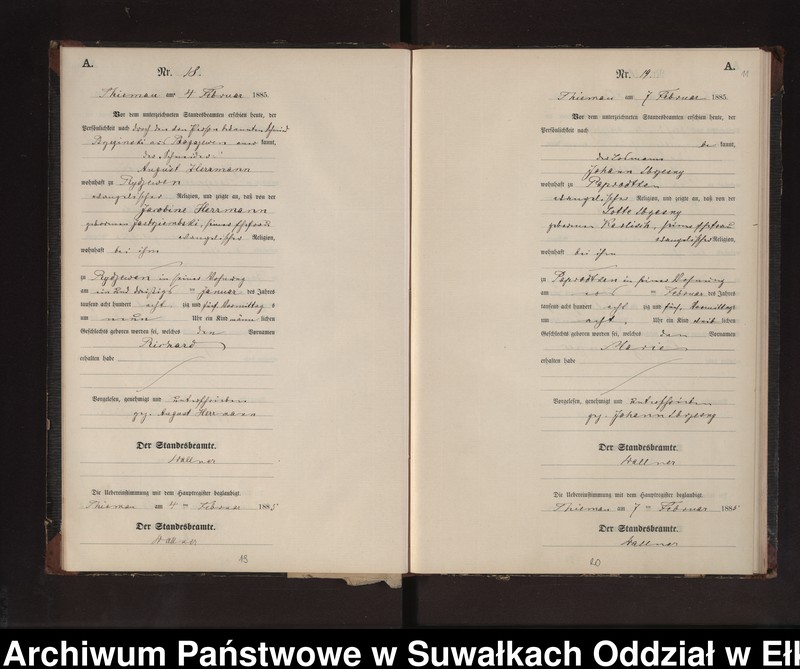 A.
Nr. 18.
Thiemau am 4 Februar 1885.
Vor dem unterzeichneten Standesbeamten erschien heute, der
Persönlichkeit nach durch den den Person bekannten Schmied
aus kannt,
der Schneider
August Herrmann
wohnhaft zu Rydzewen
evangelischer Religion, und zeigte an, daß von der
Jacobine Herrmann
geborenen seiner Ehefrau
evangelischer Religion,
wohnhaft bei ihm
zu Rydzewen in seiner Wohnung
am ein und dreißigsten Januar des Jahres
tausend acht hundert acht zig und fünf Vormittags
um neun Uhr ein Kind männlichen
Geschlechts geboren worden sei, welches den Vornamen
Richard
erhalten habe
Vorgelesen, genehmigt und unterschrieben
gez. August Herrmann
Der Standesbeamte.
Wallner
Die Uebereinstimmung mit dem Hauptregister beglaubigt.
Thiemau am 4 ten Februar 1885
Der Standesbeamte.
Wallner
19
A.
Nr. 19.
Thiemau am 7 Februar 1885.
Vor dem unterzeichneten Standesbeamten erschien heute, der
Persönlichkeit nach
be kannt,
der Losmann
Johann
wohnhaft zu Paprodtken
evangelischer Religion, und zeigte an, daß von der
Lotte
geborenen seiner Ehefrau
evangelischer Religion,
wohnhaft bei ihm
zu Paprodtken in seiner Wohnung
am ten Februar des Jahres
tausend acht hundert acht zig und fünf Vormittags
um acht Uhr ein Kind weiblichen
Geschlechts geboren worden sei, welches den Vornamen
Marie
erhalten habe
Vorgelesen, genehmigt und unterschrieben
gez. Johann
Der Standesbeamte.
Wallner
Die Uebereinstimmung mit dem Hauptregister beglaubigt.
Thiemau am 7 ten Februar 1885
Der Standesbeamte.
Wallner
20
Archiwum Państwowe w Suwałkach Oddział w Eł